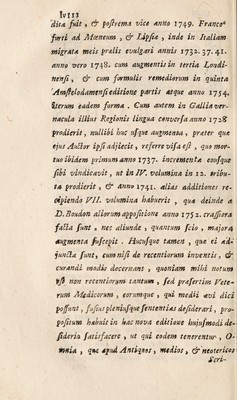 lviii
dita fuit, & postrema vice anno 1749. Franco-
furti ad Mœnum, & Lipsiæ, inde in Italiam
migrata meis prælis evulgari annis 1732. 37. 41.
anno vero 1748. cum augmentis in tertia Lovdi-
nensi, & cum formulis remediorum in quinta
Amstelodamensi editione partis atque anno 1754.
iterum eadem forma. Cum autem in Gallia ver-
nacula illius Regionis lingua conversa anno 1728
prodierit, nullibi huc usque augmenta, præter que
ejus Auctor ipsi adjecit, referre visa est, quo mor-
tuo ibidem primum anno 1737. incrementa eousque
sibi vindicavit, ut in IV. volumina in 12. tribu-
ta prodierit, & anno 1741. alias additiones re-
cipiendo VII. volumina habuerit, quæ deinde a
D. Boudon aliorum appositione anno 1752. crassiora
facta sunt, nec aliunde, quantum scio, majora
augmenta suscepit. Hucusque tamen, quæ ei ad-
juncta sunt, cum nisi de recentiorum inventis, &
curandi modis decernant, quoniam mihi notum
est non recentiorum tantum, sed præsertim Vete-
rum Medicorum, eorumque, qui medii ævi dici
possunt, fusius pleniusque sententias desiderari, pro-
positum habuit in hac nova editione hujusmodi de-
sideria satisfacere, ut qui eodem tenerentur, O-
mnia, quæ apud Antiquos, medios, & neotericos
Scri-